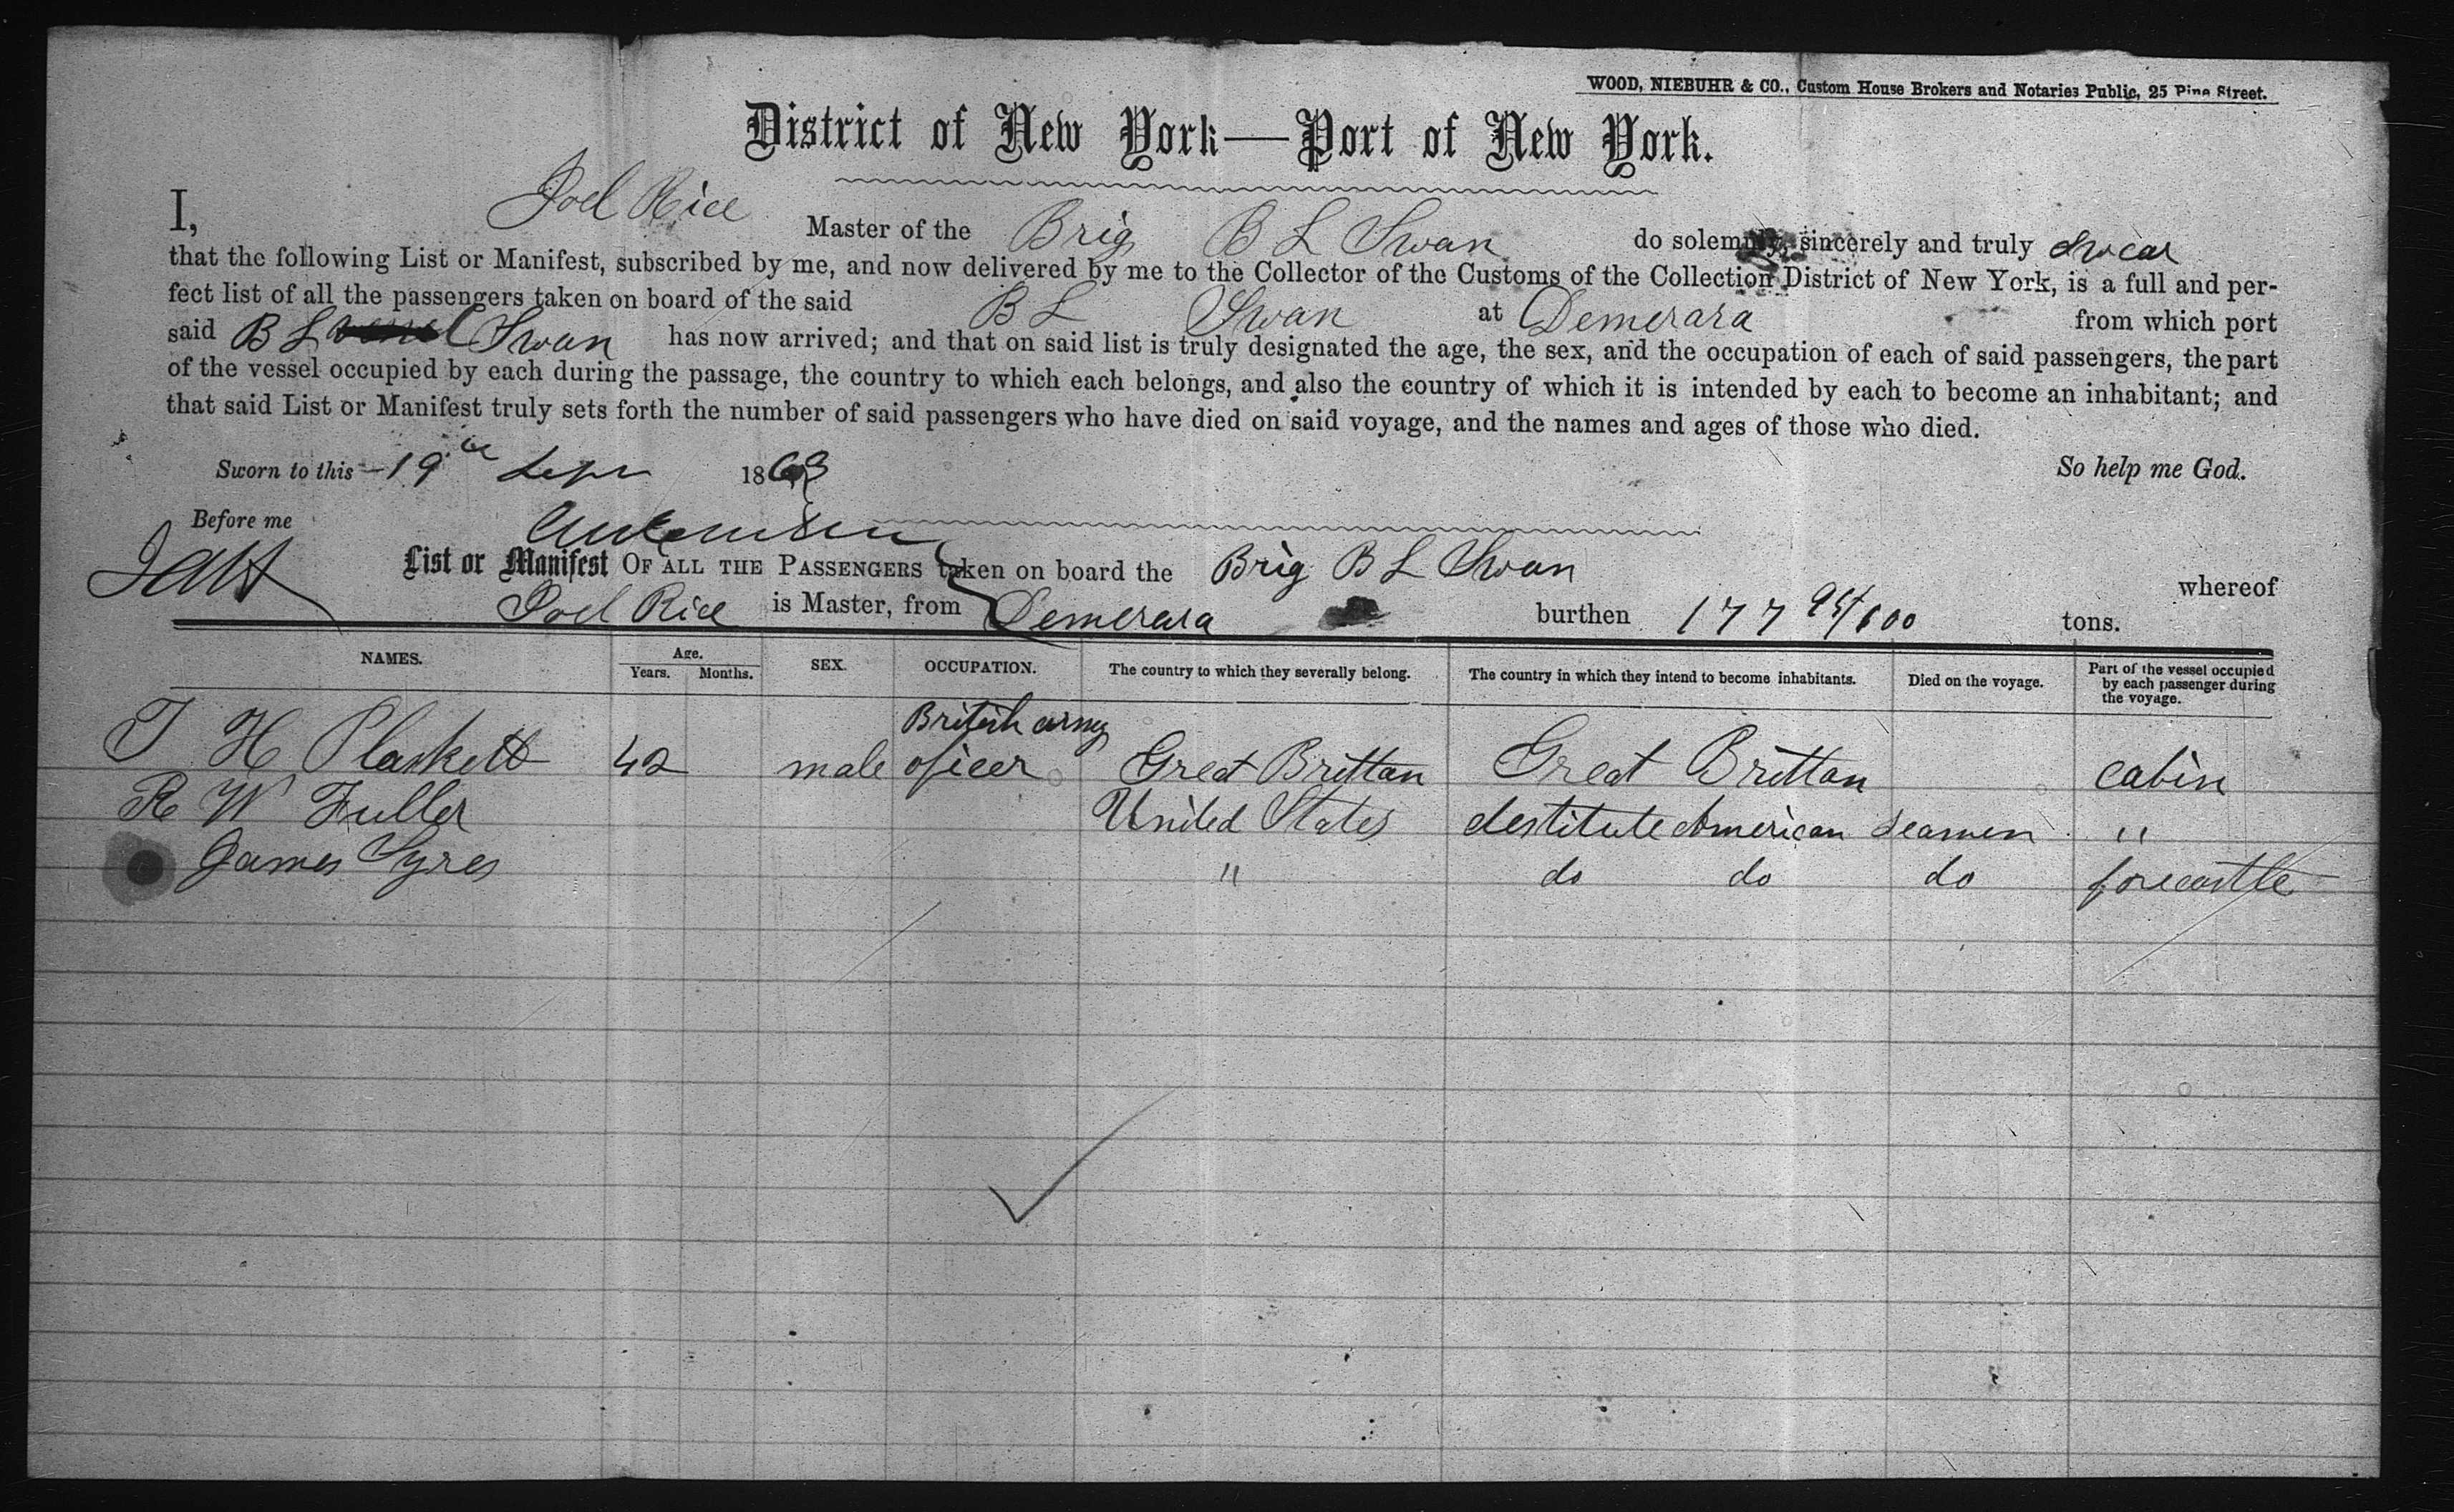 WOOD, NIEBUHR & CO., Custom House Brokers and Notaries Public, 25 Pine Street.
District of New York—Port of New York.
I, Joel Rice Master of the Brig B L Swan do solemnly, sincerely and truly swear
that the following List or Manifest, subscribed by me, and now delivered by me to the Collector of the Customs of the Collection District of New York, is a full and per-
fect list of all the passengers taken on board of the said B L Swan at Demerara from which port
said B L Swan has now arrived; and that on said list is truly designated the age, the sex, and the occupation of each of said passengers, the part
of the vessel occupied by each during the passage, the country to which each belongs, and also the country of which it is intended by each to become an inhabitant; and
that said List or Manifest truly sets forth the number of said passengers who have died on said voyage, and the names and ages of those who died.
Sworn to this 19 Sepr 1863 So help me God.
Before me
List or Manifest OF ALL THE PASSENGERS taken on board the Brig B L Swan whereof
Joel Rice is Master, from Demerara burthen 177 /100 tons.
NAMES. Age. Years. Months. SEX. OCCUPATION. The country to which they severally belong. The country in which they intend to become inhabitants. Died on the voyage. Part of the vessel occupied by each passenger during the voyage.
T H Plaskett 42 male British army oficer Great Brittan Great Brittan cabin
R W Fuller United States destitute American seamen "
James Syres " do do do forecastle